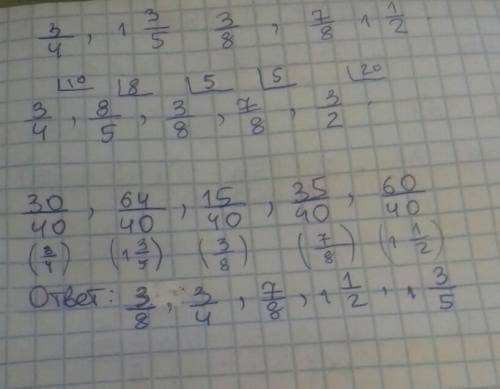 3/4, 1 3/5 3/8, 7/8 1 1/2
10 8 5 5 20
3/4, 8/5, 3/8, 7/8, 3/2.
30/40, 64/40, 15/40, 35/40, 60/40
(3/4) (1 3/5) (3/8) (7/8) (1 1/2)
Ответ: 3/8, 3/4, 7/8, 1 1/2, 1 3/5